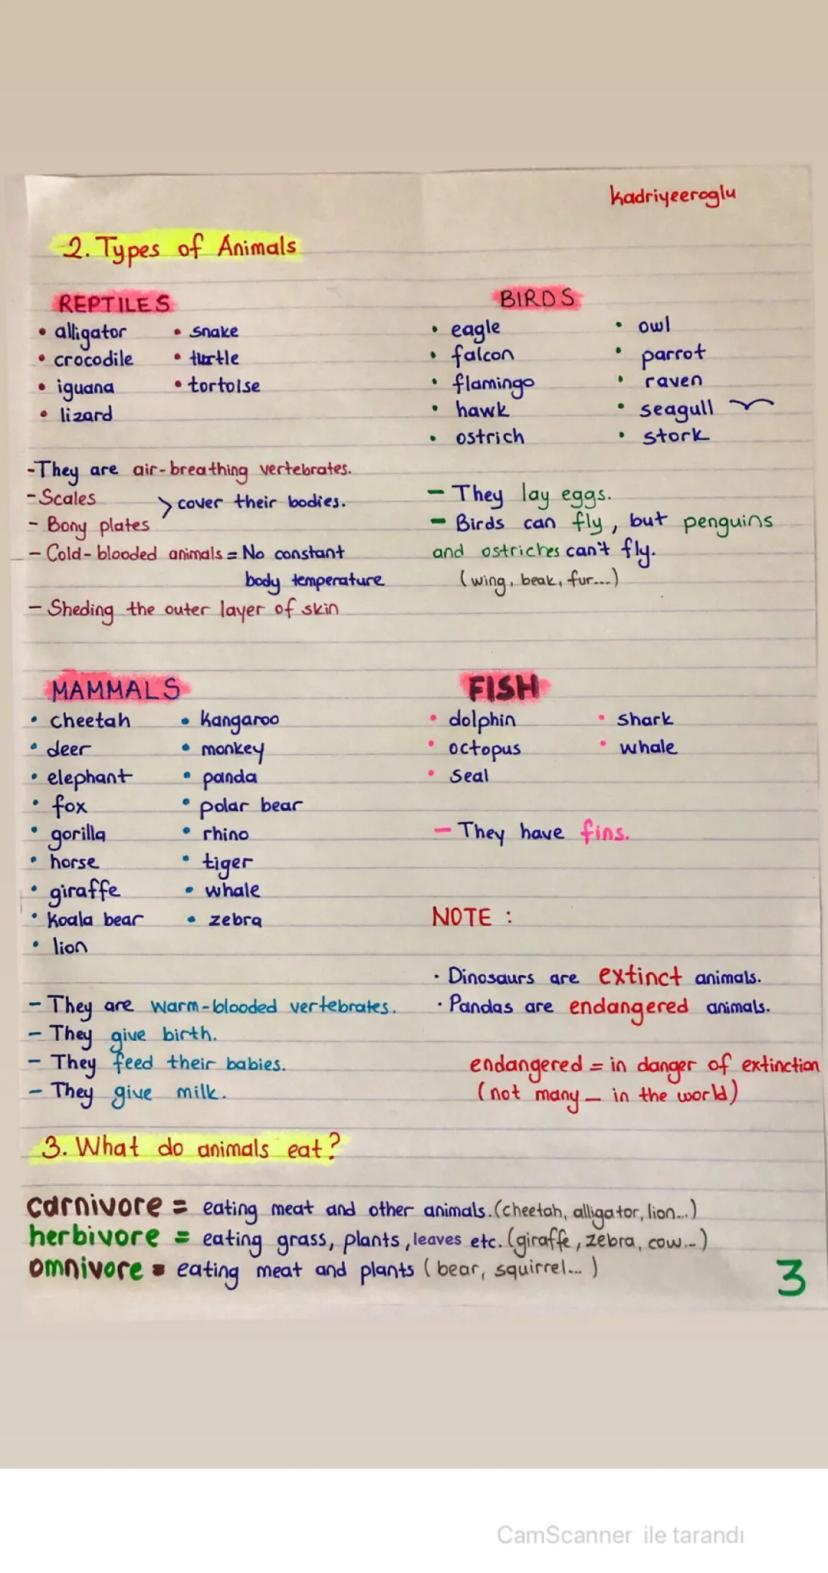 kadriyeeroglu
2. Types of Animals
REPTILES
• alligator
• crocodile
• iguana
• lizard
• snake
• turtle
• tortoise
-They are air-breathing vertebrates.
-Scales
- Bony plates
> cover their bodies.
- Cold-blooded animals = No constant
body temperature
- Sheding the outer layer of skin
BIRDS
• eagle
• falcon
• flamingo
• hawk
• ostrich
• owl
• parrot
• raven
• seagull
• stork
- They lay eggs.
- Birds can fly, but penguins
and ostriches can't fly.
(wing, beak, fur...)
MAMMALS
• cheetah
• deer
• elephant
• fox
• gorilla
• horse
• giraffe
• koala bear
• lion
• kangaroo
• monkey
• panda
• polar bear
• rhino
• tiger
• whale
• zebra
- They are warm-blooded vertebrates.
- They give birth.
- They feed their babies.
- They give milk.
FISH
• dolphin
• octopus
• seal
• shark
• whale
- They have fins.
NOTE :
• Dinosaurs are extinct animals.
• Pandas are endangered animals.
endangered = in danger of extinction
(not many _ in the world)
3. What do animals eat?
carnivore = eating meat and other animals.(cheetah, alligator, lion...)
herbivore = eating grass, plants, leaves etc. (giraffe, zebra, cow...)
omnivore = eating meat and plants (bear, squirrel...)
3
CamScanner ile tarandı